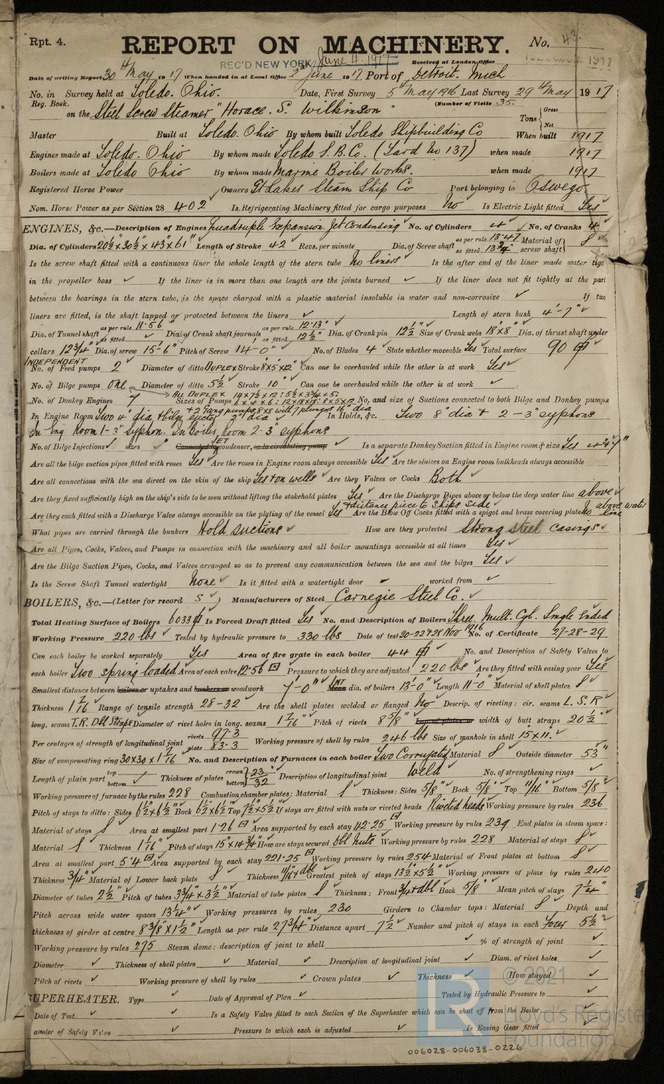 Rpt. 4. REPORT ON MACHINERY. No.
REC'D NEW YORK June 4 1917 Received at London Office
Date of writing Report 30th May 1917 When handed in at Local Office 2 June 1917 Port of Detroit. Mich
No. in Survey held at Toledo. Ohio. Date, First Survey 5th May 1916 Last Survey 29th May 1917
Reg. Book. (Number of Visits 35
on the Steel Screw Steamer "Horace. S. Wilkinson" Tons Gross Net
Master Built at Toledo. Ohio By whom built Toledo Shipbuilding Co When built 1917
Engines made at Toledo. Ohio By whom made Toledo S.B.Co. (Yard No 137) when made 1917
Boilers made at Toledo. Ohio By whom made Boiler Works. when made 1917
Registered Horse Power Owners Gt Lakes Steam Ship Co Port belonging to Oswego
Nom. Horse Power as per Section 28 402 Is Refrigerating Machinery fitted for cargo purposes No Is Electric Light fitted Yes
ENGINES, &c.—Description of Engines Quadruple Expansion Jet Condensing No. of Cylinders 4 No. of Cranks 4
Dia. of Cylinders Length of Stroke 42 Revs. per minute Dia. of Screw shaft as per rule as fitted Material of screw shaft S
Is the screw shaft fitted with a continuous liner the whole length of the stern tube No liners Is the after end of the liner made water tight
in the propeller boss ✓ If the liner is in more than one length are the joints burned ✓ If the liner does not fit tightly at the part
between the bearings in the stern tube, is the space charged with a plastic material insoluble in water and non-corrosive ✓ If two
liners are fitted, is the shaft lapped or protected between the liners ✓ Length of stern bush 4'-7"
Dia. of Tunnel shaft as per rule 11.56 as fitted Dia. of Crank shaft journals as per rule 12.13" as fitted 12½" Dia. of Crank pin 12½" Size of Crank webs 18x8" Dia. of thrust shaft under
collars 12¾" Dia. of screw 15'-6" Pitch of Screw 14'-0" No. of Blades 4 State whether moveable Yes Total surface 90
INDEPENDENT
No. of Feed pumps 2 Diameter of ditto DUPLEX Stroke 8x5x12 Can one be overhauled while the other is at work Yes
No. of Bilge pumps one Diameter of ditto 5½ Stroke 10" Can one be overhauled while the other is at work ✓
No. of Donkey Engines 7 Sizes of Pumps No. and size of Suctions connected to both Bilge and Donkey pumps
In Engine Room Two 4" dia In Holds, &c. Two 8" dia + 2-3" syphons
In Eng Room 1-3" syphon. In Boiler Room 2-3" syphons
No. of Bilge Injections sizes Connected to condenser, or to circulating pump Is a separate Donkey Suction fitted in Engine room & size Yes
Are all the bilge suction pipes fitted with roses Yes Are the roses in Engine room always accessible Yes Are the sluices on Engine room bulkheads always accessible
Are all connections with the sea direct on the skin of the ship Yes + on wells Are they Valves or Cocks Both
Are they fixed sufficiently high on the ship's side to be seen without lifting the stokehold plates Yes Are the Discharge Pipes above or below the deep water line above
Are they each fitted with a Discharge Valve always accessible on the plating of the vessel Yes + distance piece to ships side Are the Blow Off Cocks fitted with a spigot and brass covering plate No above water line
What pipes are carried through the bunkers Hold suctions How are they protected Strong steel casings
Are all Pipes, Cocks, Valves, and Pumps in connection with the machinery and all boiler mountings accessible at all times Yes
Are the Bilge Suction Pipes, Cocks, and Valves arranged so as to prevent any communication between the sea and the bilges Yes
Is the Screw Shaft Tunnel watertight None Is it fitted with a watertight door ✓ worked from ✓
BOILERS, &c.—(Letter for record S) Manufacturers of Steel Carnegie Steel Co.
Total Heating Surface of Boilers 6033 Is Forced Draft fitted Yes No. and Description of Boilers Three. Mult. Cyl. Single Ended
Working Pressure 220 lbs Tested by hydraulic pressure to 330 lbs Date of test Nov 1916 No. of Certificate 27-28-29
Can each boiler be worked separately Yes Area of fire grate in each boiler 44 No. and Description of Safety Valves to
each boiler Two spring loaded Area of each valve 12.56 Pressure to which they are adjusted 220 lbs Are they fitted with easing gear Yes
Smallest distance between boilers or uptakes and bunkers or woodwork 7'-0" Mean dia. of boilers 13'-0" Length 11'-0" Material of shell plates S
Thickness 1 7/16 Range of tensile strength 28-32 Are the shell plates welded or flanged No Descrip. of riveting: cir. seams L. S. R
long. seams T.R. Dbl Straps Diameter of rivet holes in long. seams 1 7/16" Pitch of rivets width of butt straps 20½
Per centages of strength of longitudinal joint rivets 97.3 plate 83.3 Working pressure of shell by rules 246 lbs Size of manhole in shell 15x11
Size of compensating ring 30x30x1 7/16 No. and Description of Furnaces in each boiler Two Corrugated Material S Outside diameter 53"
Length of plain part top bottom Thickness of plates crown bottom 23/32 Description of longitudinal joint Weld No. of strengthening rings
Working pressure of furnace by the rules 228 Combustion chamber plates: Material S Thickness: Sides 5/8 Back 5/8 Top 11/16 Bottom 5/8
Pitch of stays to ditto: Sides 6½x6½ Back 6½x6½ Top If stays are fitted with nuts or riveted heads Riveted heads Working pressure by rules 236
Material of stays S Area at smallest part 1.26 Area supported by each stay 42.25 Working pressure by rules 239 End plates in steam space:
Material S Thickness 1 1/16 Pitch of stays How are stays secured Dbl Nuts Working pressure by rules 228 Material of stays S
Area at smallest part 5.4 Area supported by each stay 221.25 Working pressure by rules 254 Material of Front plates at bottom S
Thickness 3/4 Material of Lower back plate S Thickness Greatest pitch of stays Working pressure of plate by rules 240
Diameter of tubes 2½ Pitch of tubes 3¾x3½ Material of tube plates S Thickness: Front Back 5/8" Mean pitch of stays
Pitch across wide water spaces 13¼" Working pressures by rules 230 Girders to Chamber tops: Material S Depth and
thickness of girder at centre 8 3/8 x 1½" Length as per rule 27¾ Distance apart 7½ Number and pitch of stays in each Four 5½"
Working pressure by rules 275 Steam dome: description of joint to shell ✓ % of strength of joint ✓
Diameter ✓ Thickness of shell plates ✓ Material ✓ Description of longitudinal joint ✓ Diam. of rivet holes ✓
Pitch of rivets ✓ Working pressure of shell by rules ✓ Crown plates ✓ Thickness ✓ How stayed ✓
SUPERHEATER. Type ✓ Date of Approval of Plan ✓ Tested by Hydraulic Pressure to ✓
Date of Test ✓ Is a Safety Valve fitted to each Section of the Superheater which can be shut off from the Boiler ✓
Diameter of Safety Valve ✓ Pressure to which each is adjusted ✓ Is Easing Gear fitted ✓
© 2021
Lloyd's Register
Foundation
006028-006038-0226